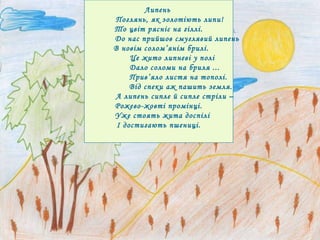 Липень
Поглянь, як золотіють липи!
То цвіт рясніє на гіллі.
До нас прийшов смуглявий липень
В новім солом’янім брилі.
Це жито липневі у полі
Дало соломи на бриля ...
Прив’яло листя на тополі.
Від спеки аж пашить земля.
А липень сипле й сипле стріли –
Рожево-жовті промінці.
Уже стоять жита доспілі
І достигають пшениці.